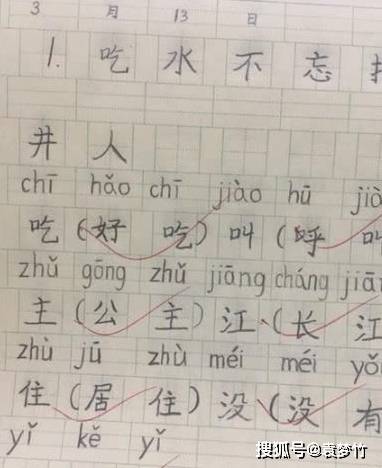 3 月 13 日
1. 吃水不忘
井人
chī hǎo chī jiào hū jiò
吃(好吃)叫(呼叫
zhǔ gōng zhǔ jiāng cháng jiān
主(公主)江(长江
zhù jū zhù méi méi yǒ
住(居住)没(没有
yǐ kě yǐ
搜狐号@袁梦竹